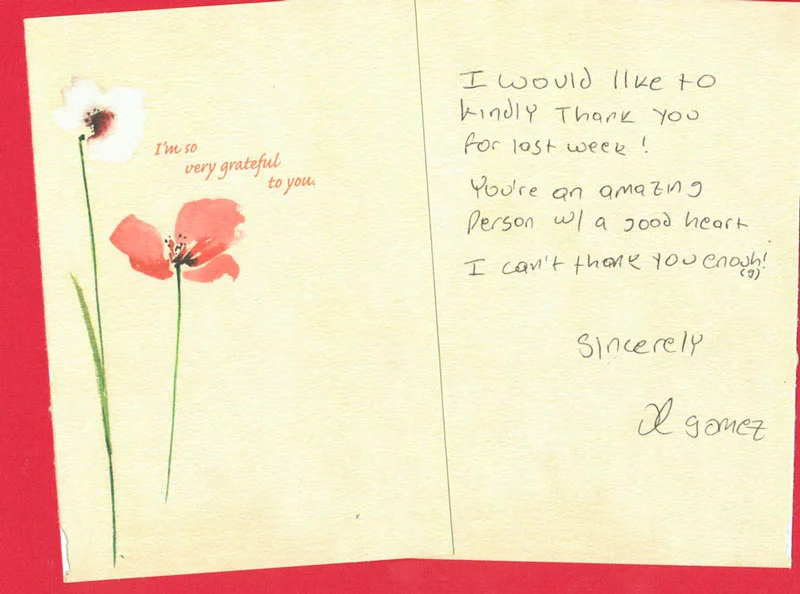 I'm so
very grateful
to you.
I would like to
kindly Thank you
for last week!
You're an amazing
Person w/ a good heart
I can't thank you enouh!
(g)
Sincerely
gomez